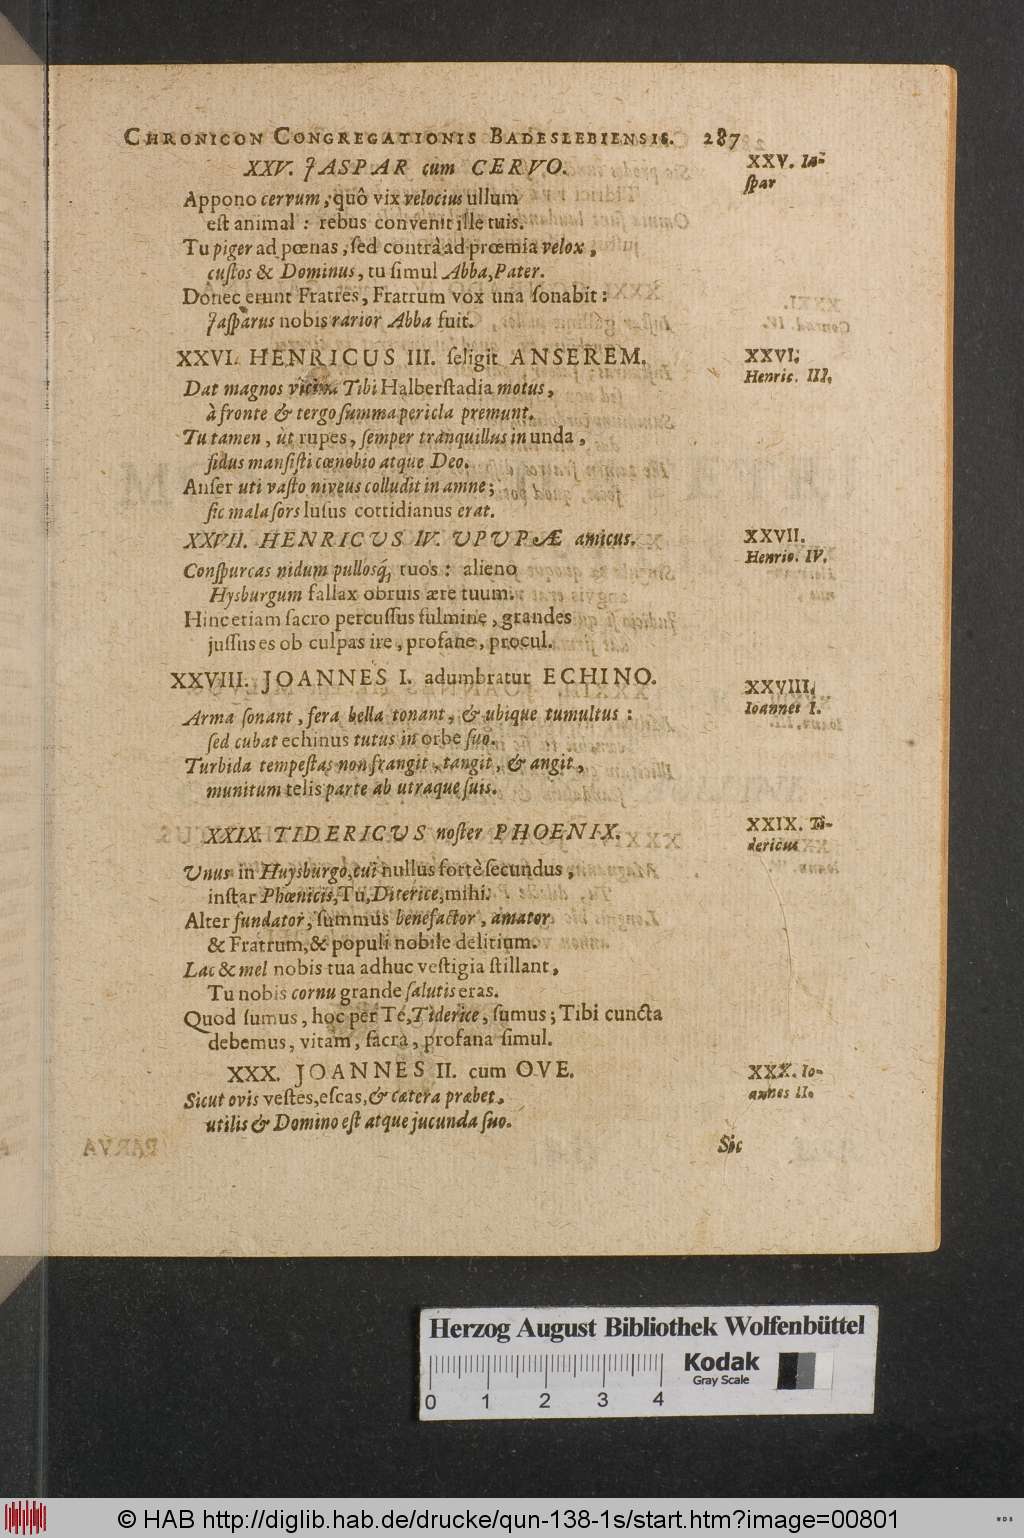 CHRONICON CONGREGATIONIS BADESLEBIENSIS. 287
XXV. JASPAR cum CERVO.
XXV. Ia-
ſpar
Appono cervum, quô vix velocius ullum
eſt animal : rebus convenit ille tuis.
Tu piger ad pœnas, ſed contrà ad prœmia velox,
cuſtos & Dominus, tu ſimul Abba, Pater.
Donec erunt Fratres, Fratrum vox una ſonabit:
Jaſparus nobis rarior Abba fuit.
XXVI. HENRICUS III. ſeligit ANSEREM.
XXVI.
Henric. III.
Dat magnos vicina Tibi Halberſtadia motus,
à fronte & tergo ſumma pericla premunt.
Tu tamen, ùt rupes, ſemper tranquillus in unda,
fidus manſiſti cœnobio atque Deo.
Anſer uti vaſto niveus colludit in amne;
ſic mala ſors luſus cottidianus erat.
XXVII. HENRICUS IV. UPUPÆ amicus.
XXVII.
Henric. IV.
Conſpurcas nidum pullosq́; tuos : alieno
Hysburgum fallax obruis ære tuum.
Hinc etiam ſacro percuſſus fulmine, grandes
juſſus es ob culpas ire, profane, procul.
XXVIII. JOANNES I. adumbratur ECHINO.
XXVIII.
Ioannes I.
Arma ſonant, fera bella tonant, & ubique tumultus :
ſed cubat echinus tutus in orbe ſuo.
Turbida tempeſtas non frangit, tangit, & angit,
munitum telis parte ab utraque ſuis.
XXIX. TIDERICUS noſter PHOENIX.
XXIX. Ti-
dericus
Unus in Huysburgo, cui nullus fortè ſecundus,
inſtar Phœnicis, Tu, Diterice, mihi.
Alter fundator, ſummus benefactor, amator
& Fratrum, & populi nobile delitium.
Lac & mel nobis tua adhuc veſtigia ſtillant,
Tu nobis cornu grande ſalutis eras.
Quod ſumus, hoc per Te, Tiderice, ſumus; Tibi cuncta
debemus, vitam, ſacra, profana ſimul.
XXX. JOANNES II. cum OVE.
XXX. Io-
annes II.
Sicut ovis veſtes, eſcas, & cætera præbet,
utilis & Domino eſt atque jucunda ſuo.
Sic
Herzog August Bibliothek Wolfenbüttel
Kodak
Gray Scale
0 1 2 3 4
© HAB http://diglib.hab.de/drucke/qun-138-1s/start.htm?image=00801